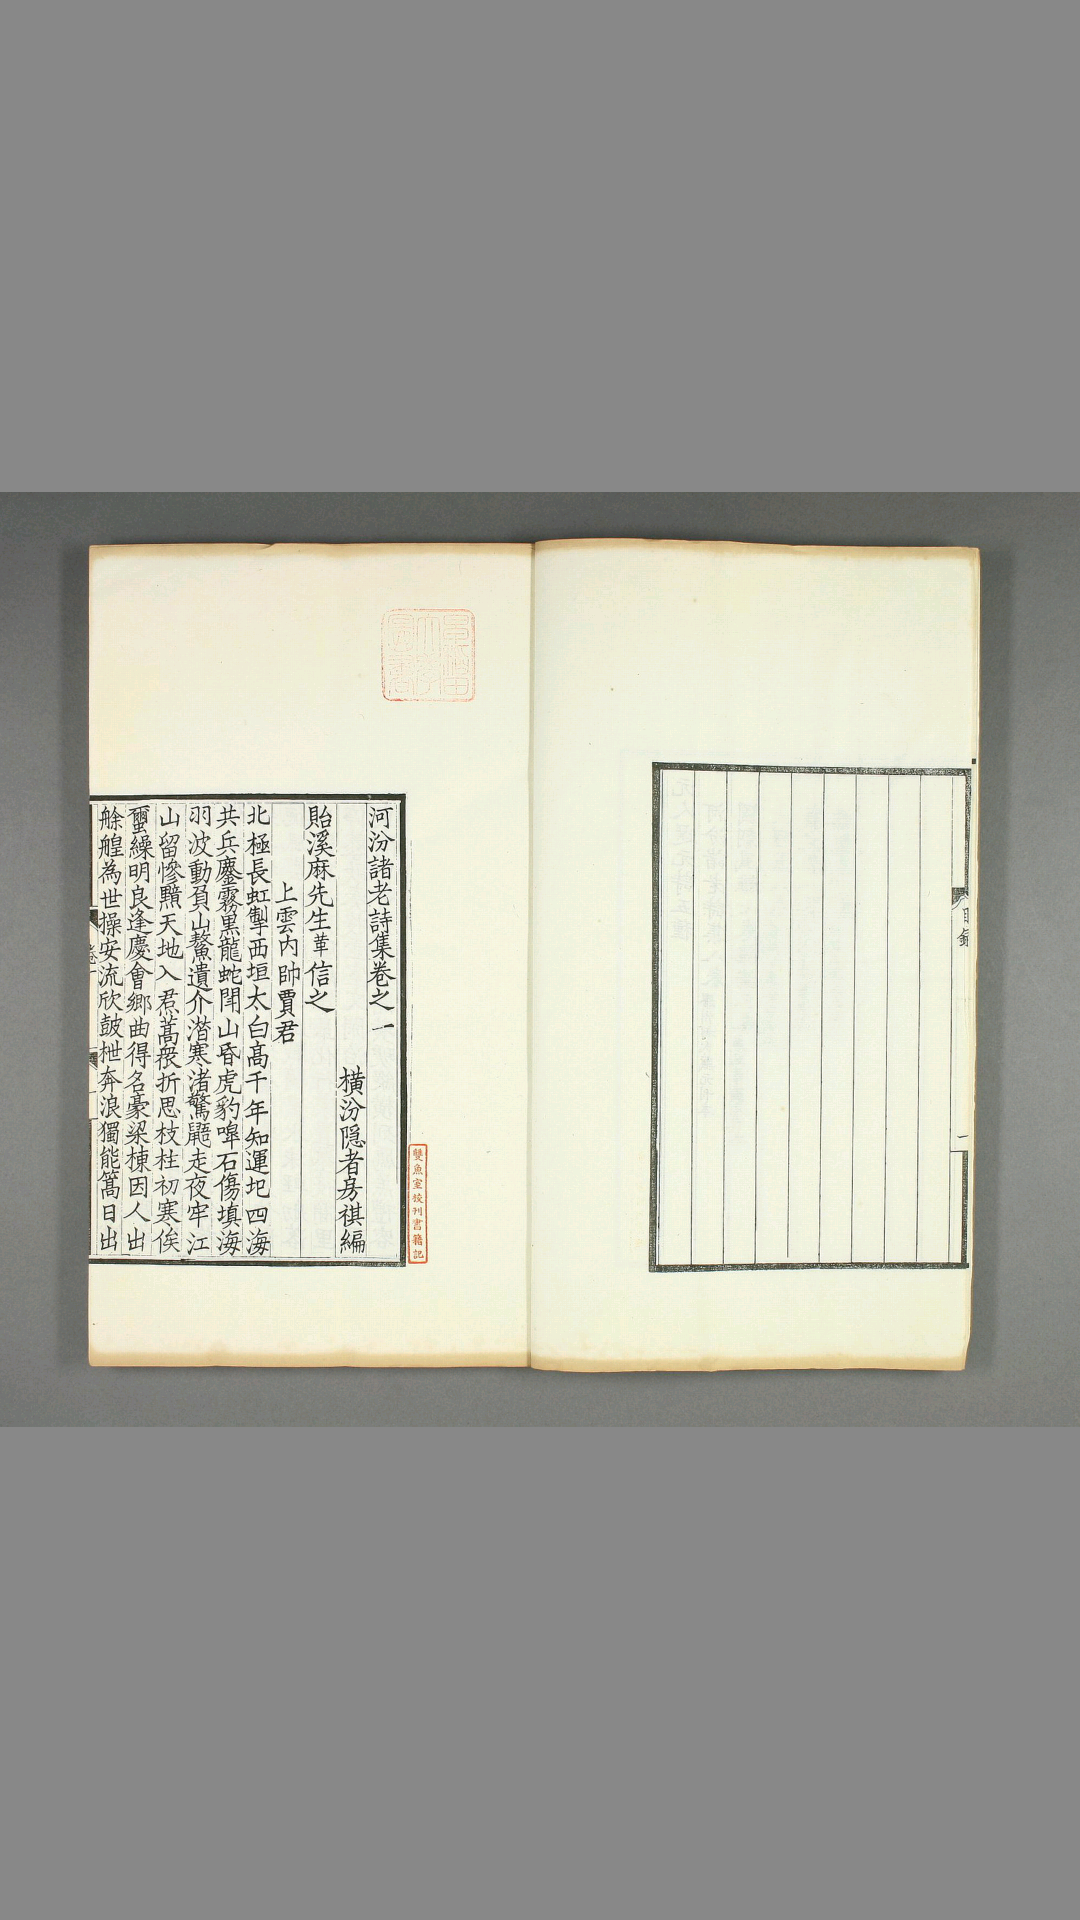 目錄
一
河汾諸老詩集卷之一
橫汾隐者房祺編
貽溪麻先生革信之
上雲內帥賈君
北極長虹掣西垣太白高千年知運圮四海
共兵鏖霧黒龍蛇鬥山昏虎豹嘷石傷填海
羽波動負山鰲遺介潛寒渚驚鼯走夜牢江
山留慘黷天地入焄蒿衆折思枝柱初寒俟
蠒繰明良逢慶會鄉曲得名豪梁棟因人出
艅艎為世操安流欣皷枻奔浪獨能篙日出
雙魚室校刊書籍記